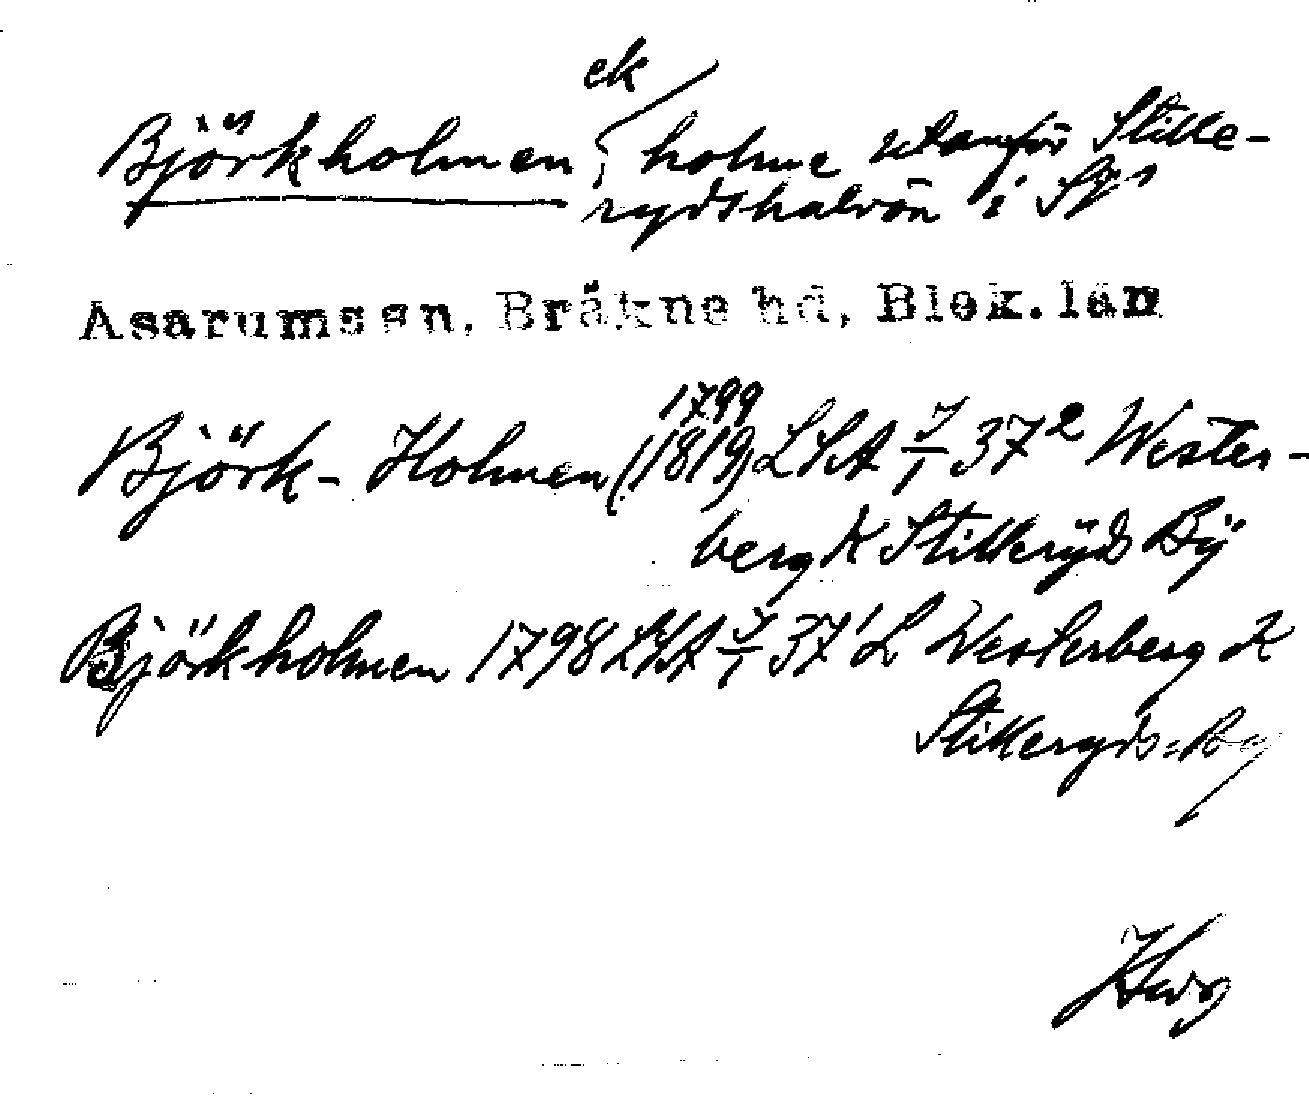 ek
Björkholmen, holme utanför Stille-
rydshalvön i
Asarumssn, Bräkne hd, Blek.län
1799
Björk-Holmen (1819) LSA J/1 37² Wester-
berg K Stilleryds Bÿ
Björkholmen 1798 LSA J/1 37' L Westerberg K
Stilleryds=By